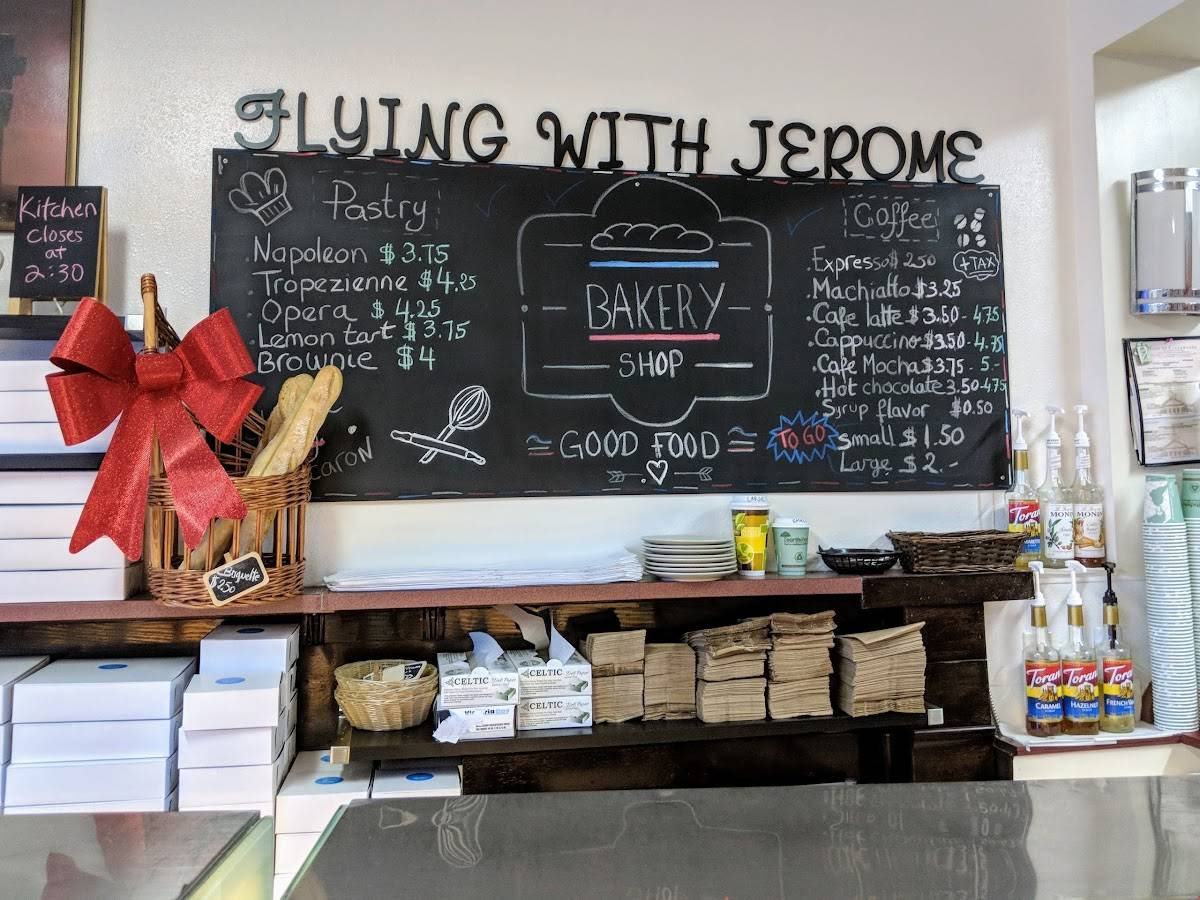 FLYING WITH JEROME
Kitchen
closes
at
2:30
Pastry
Napoleon $3.75
Tropezienne $4.25
Opera $4.25
Lemon tart $3.75
Brownie $4
BAKERY
SHOP
GOOD FOOD
Coffee
+TAX
Expresso $2.50
Machiatto $3.25
Cafe latte $3.50 - 4.75
Cappuccino $3.50 - 4.75
Cafe Mocha $3.75 - 5.-
Hot chocolate 3.50-4.75
Syrup flavor $0.50
TO GO
Small $1.50
Large $2.-
Baguette
$2.50
CELTIC
CELTIC
CELTIC
Torani
MONIN
MONIN
Torani
CARAMEL
Torani
HAZELNUT
Torani